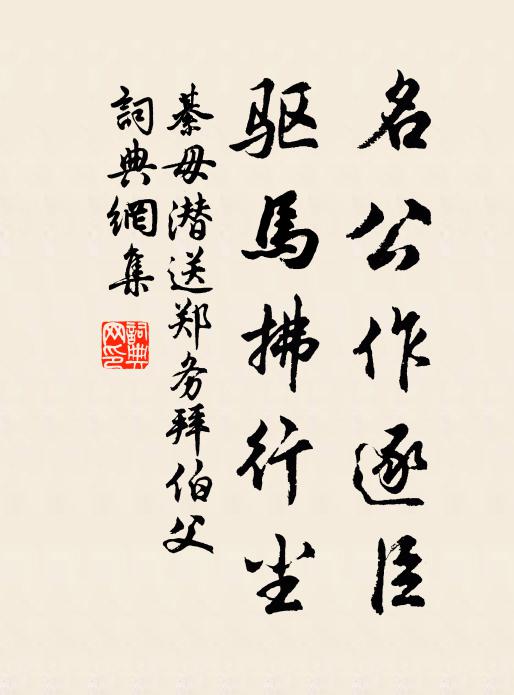 名公作逐臣
驱馬拂行尘
綦毋潜送郑务拜伯父
詞典網集
詞典网印